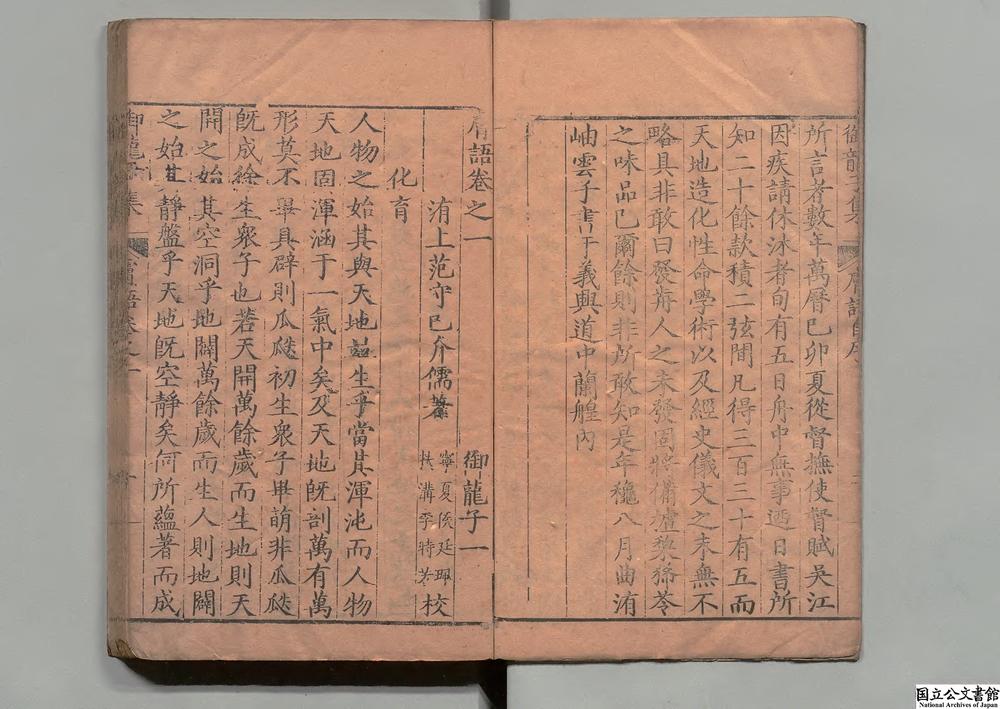 御龍子集
膚語自序
所言者數年萬曆己卯夏從督撫使督賦吳江
因疾請休沐者旬有五日舟中無事遞日書所
知二十餘款積二弦間凡得三百三十有五而
天地造化性命學術以及經史儀文之末無不
略具非敢曰發前人之未發固將備爐藜豨苓
之味品已爾餘則非所敢知是年穐八月曲洧
岫雲子書于義興道中蘭艎內
膚語卷之一
御龍子一
洧上范守己介儒著
寧夏侯廷珮
扶溝李時芳
校
化育
人物之始其與天地並生乎當其渾沌而人物
天地固渾涵于一氣中矣及天地旣剖萬有萬
形莫不畢具辟則瓜瓞初生衆子畢萌非瓜瓞
旣成徐生衆子也若天開萬餘歲而生地則天
開之始其空洞乎地闢萬餘歲而生人則地闢
之始其靜盤乎天地旣空靜矣何所蘊著而成
御龍子集
膚語卷之一
一
国立公文書館
National Archives of Japan